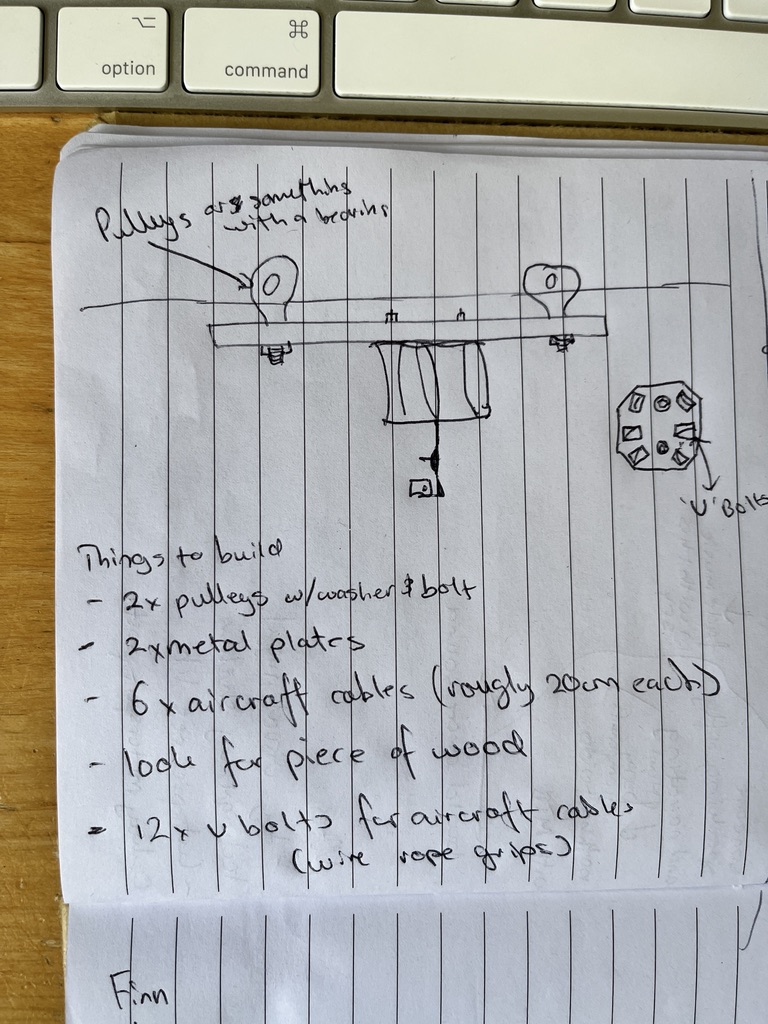 ⌥
option
⌘
command
Pulleys are something
with a bearing
'U' Bolts
Things to build
- 2x pulleys w/washer & bolt
- 2x metal plates
- 6x aircraft cables (rougly 20cm each)
- look for piece of wood
- 12x U bolts for aircraft cables
(wire rope grips)
Finn